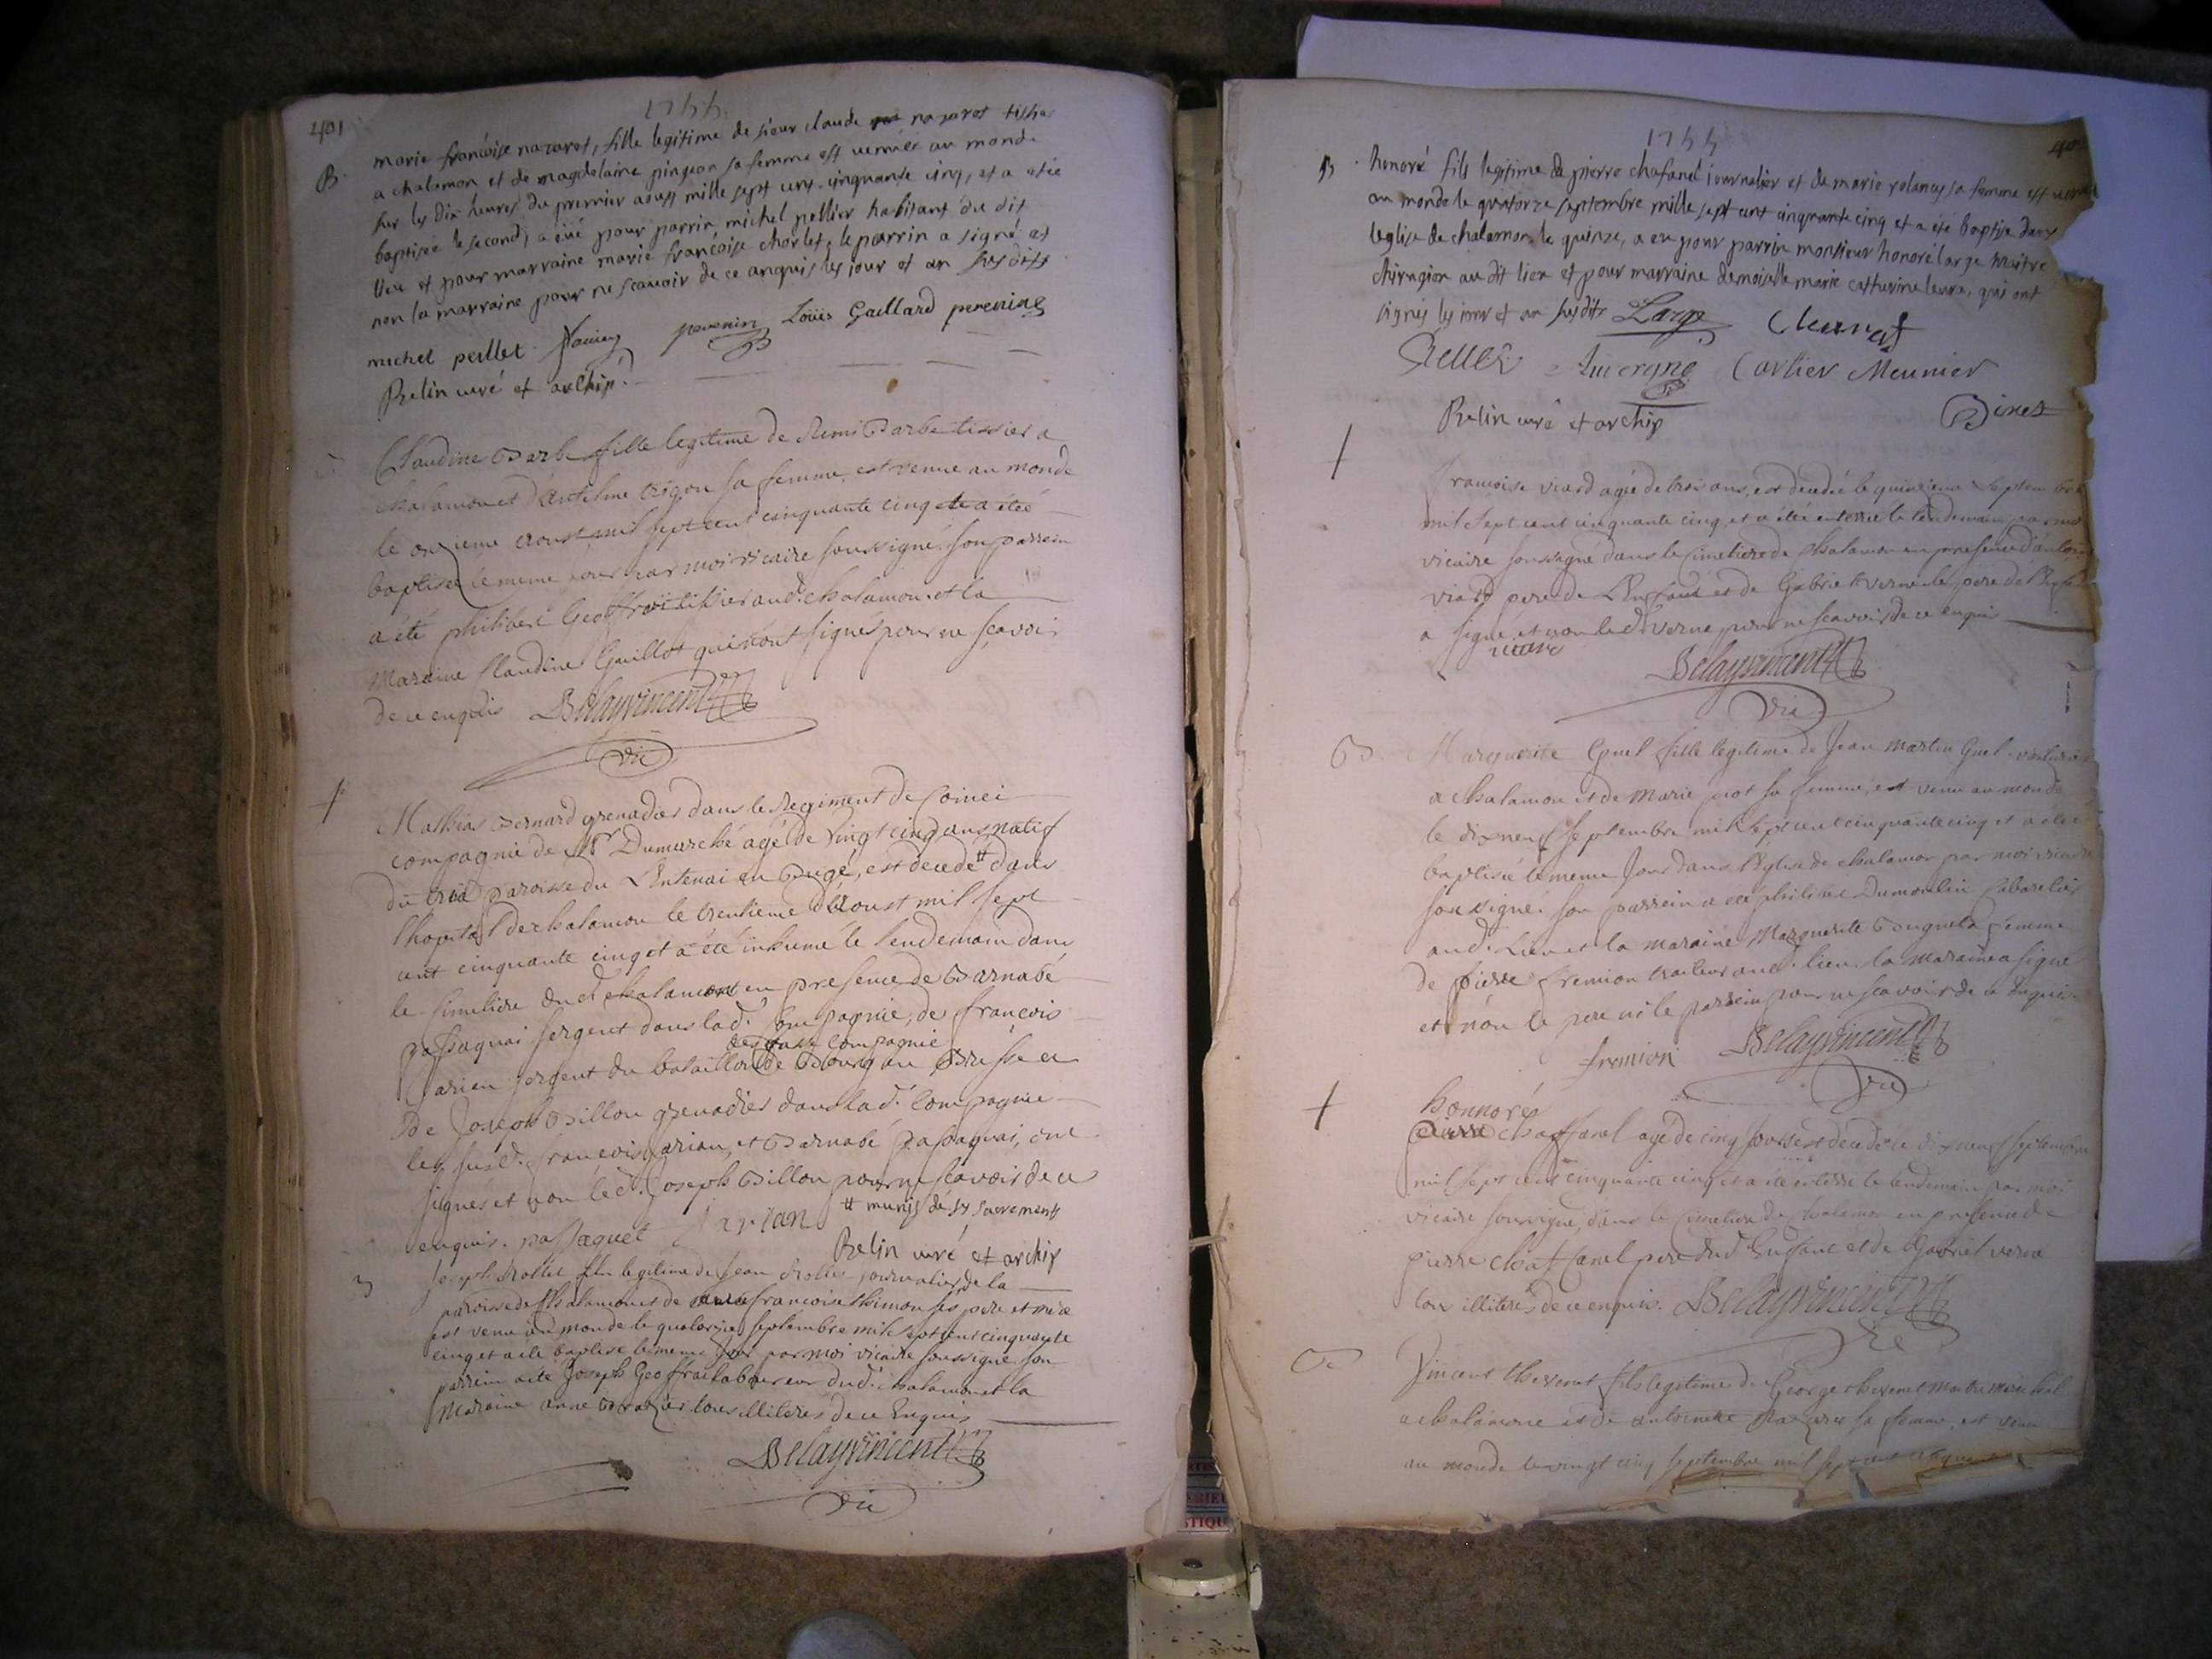 401
1755
B.
marie françoise nazaret, fille legitime de sieur claude nazaret tissier
a chalamon et de magdelaine pingeon sa femme est venüe au monde
sur les dix heures du premier aoust mille sept cent cinquante cinq, et a etée
baptisée le second, a eüe pour parrin michel pellier habitant du dit
lieu et pour marraine marie françoise chorlet, le parrin a signé et
non la marraine pour ne scauoir de ce enquis les jour et an susdits
michel peillet Louis Gaillard perenine
Relin curé et archip.
Claudine Barbe fille legitime de Remi Barbe tissier a
chalamon et d'antelme trigon sa femme, est venue au monde
le onzieme aoust mil sept cent cinquante cinq et a étée
baptisée le meme jour par moi vicaire soussigné. son parrein
a été philibert Geoffrai tissier aud. chalamon et la
Maraine Claudine Guillot qui n'ont signés pour ne sçavoir
de ce enquis Belayvincent
vic
Mathias Bernard grenadier dans le Regiment de
compagnie de Mr Dumarché agé de vingt cinq ans natif
du paroisse du en Bugé, est decedé # dans
l'hopital de chalamon le trentieme d'aoust mil sept
cent cinquante cinq et a été inhumé le lendemain dans
le simetiere dud. chalamont en presence de Barnabé
passaquai sergent dans lad. compagnie, de françois
de compagnie
arian sergent du bataillon de Bourg en Bresse et
de Joseph Billon grenadier dans lad. compagnie
les susd. françois arian, et Barnabé passaquai, ont
signés et non led. Joseph Billon pour ne scavoir de ce
enquis. passaquet arian # munis de ss sacrements
Relin curé et archip
Joseph Rollet fils legitime de Jean Rollet journalier de la
paroisse de Chalamon et de francoise thimon ses pere et mere
est venu au monde le quatorzieme septembre mil sept cent cinquante
cinq et a ete baptisé le meme jour par moi vicaire soussigné. son
parrein a été Joseph Geoffrai laboureur dud. chalamon et la
Maraine anne tous illiterés de ce Enquis
Belayvincent
vic
1755
B.
honoré fils legitime de pierre chafanel journalier et de marie rolancy sa femme est
au monde le quatorze septembre mille sept cent cinquante cinq et a été baptisé dans
leglise de chalamon le quinze, a eu pour parrin monsieur honoré large maitre
chirugion au dit lieu et pour marraine demoiselle marie catherine leura, qui ont
signés les jour et an susdits Large
Auvergne Carlier Meunier
Relin curé et archip
Binet
francoise viard agée de trois ans, est decedée le quinzieme septembre
mil sept cent cinquante cinq, et a étée enterrée le lendemain par moi
vicaire soussigné dans le cimetiere de chalamon en presence d'antoine
viard pere de l'Enfant et de Gabriel verne le pere de
a signé et non led. verne pour ne scavoir de ce enquis
viard
Belayvincent
vic
Marguerite Guel fille legitime de Jean Martin Guel
a chalamon et de Marie piot sa femme, est venu au monde
le dixneuf septembre mil sept cent cinquante cinq et a étée
baptisée le meme Jour dans l'Eglise de chalamon par moi vicaire
soussigné. son parrein a été philibert Dumoulin Cabaretier
aud. Lieu et la maraine Marguerite femme
de pierre fremion traiteur aud. lieu. la maraine a signé
et non le pere ni le parrein pour ne scavoir de ce Enquis.
fremion Belayvincent
vic
honnoré
chaffanel agé de cinq jours est decedé le dixneuf septembre
mil sept cent cinquante cinq et a été enterré le lendemain par moi
vicaire soussigné, dans le cimetiere de chalamon en presence de
pierre chaffanel pere dud. Enfant et de Gabriel verne
tous illiterés de ce enquis. Belayvincent
Vincent thevenet fils legitime de George thevenet Maitre marechal
a chalamon et de antoinette sa femme, est venu
au monde le vingt cinq septembre mil sept cent